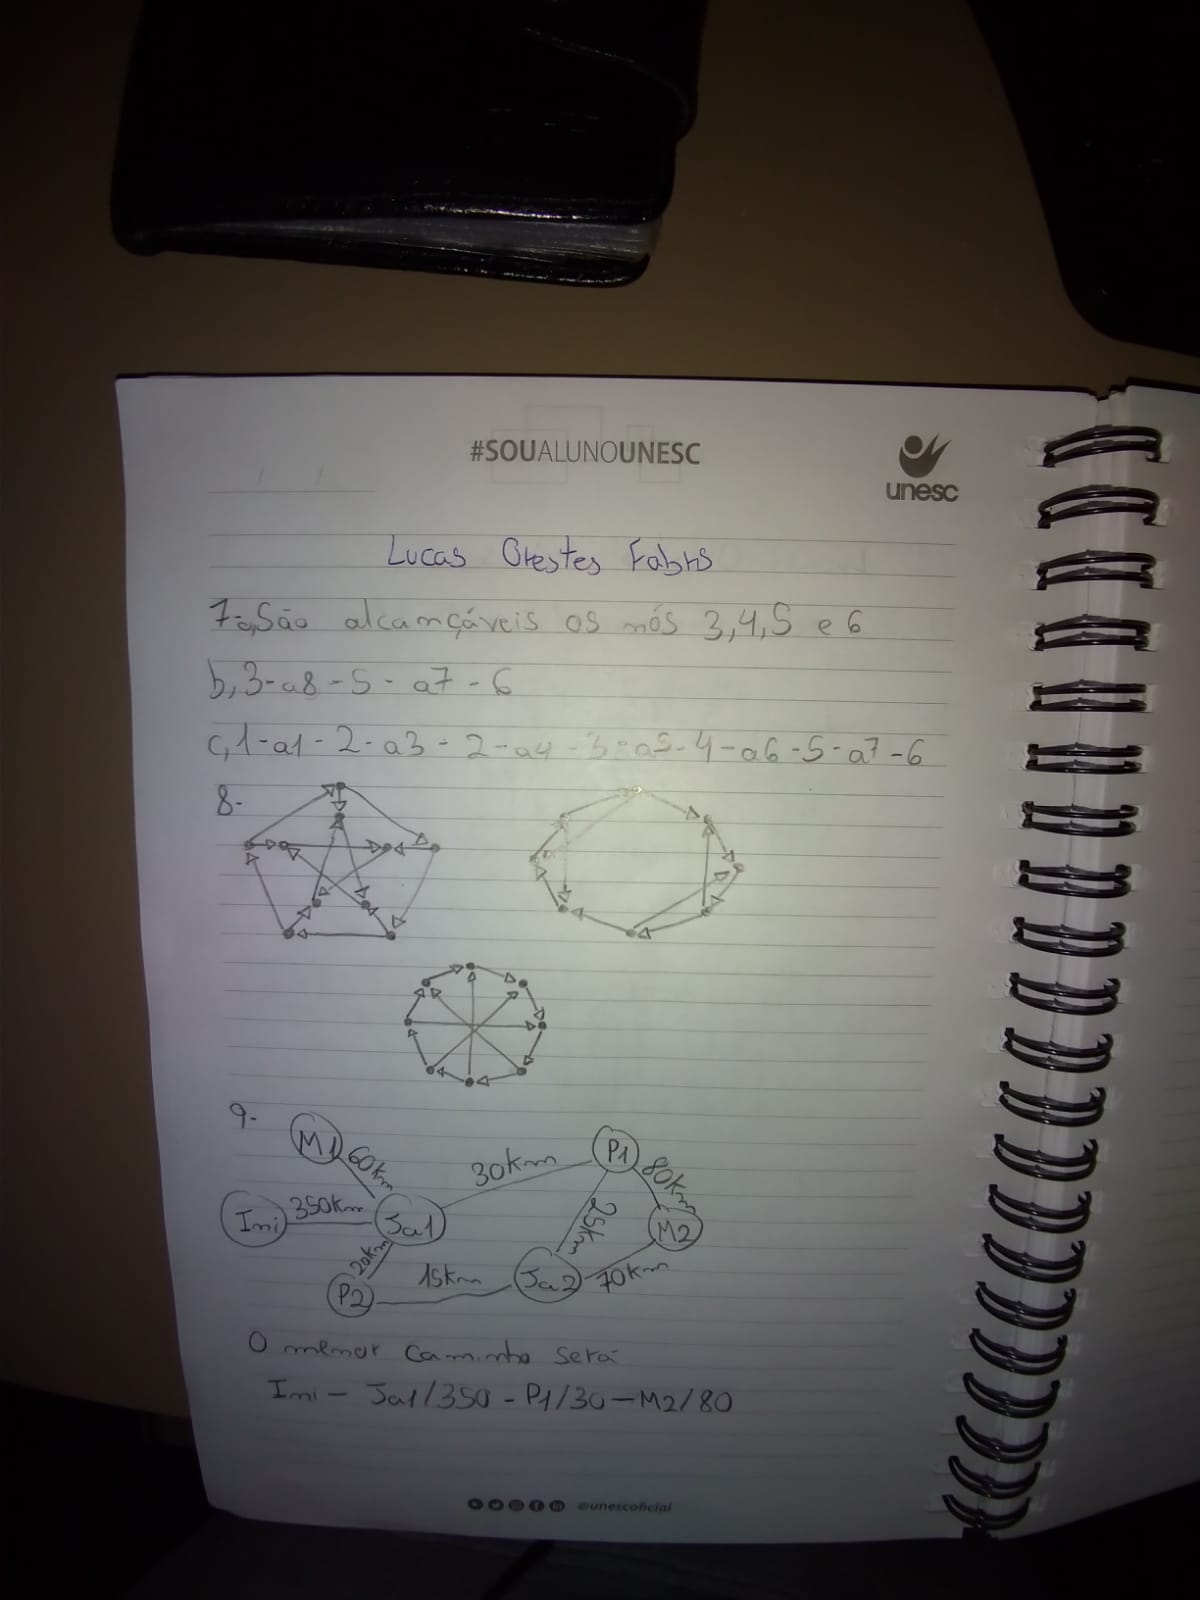 #SOUALUNOUNESC
unesc
Lucas Orestes Fabris
7-a, São alcançáveis os nós 3,4,5 e 6
b, 3-a8-5-a7-6
c, 1-a1-2-a3-2-a4-3-a5-4-a6-5-a7-6
8-
9-
M1 60km
30km P1 80km
Ini 350km Ja1 25km M2
20km
P2 15km Ja2 70km
O menor caminho será
Ini - Ja1/350 - P1/30 - M2/80
@unescoficial